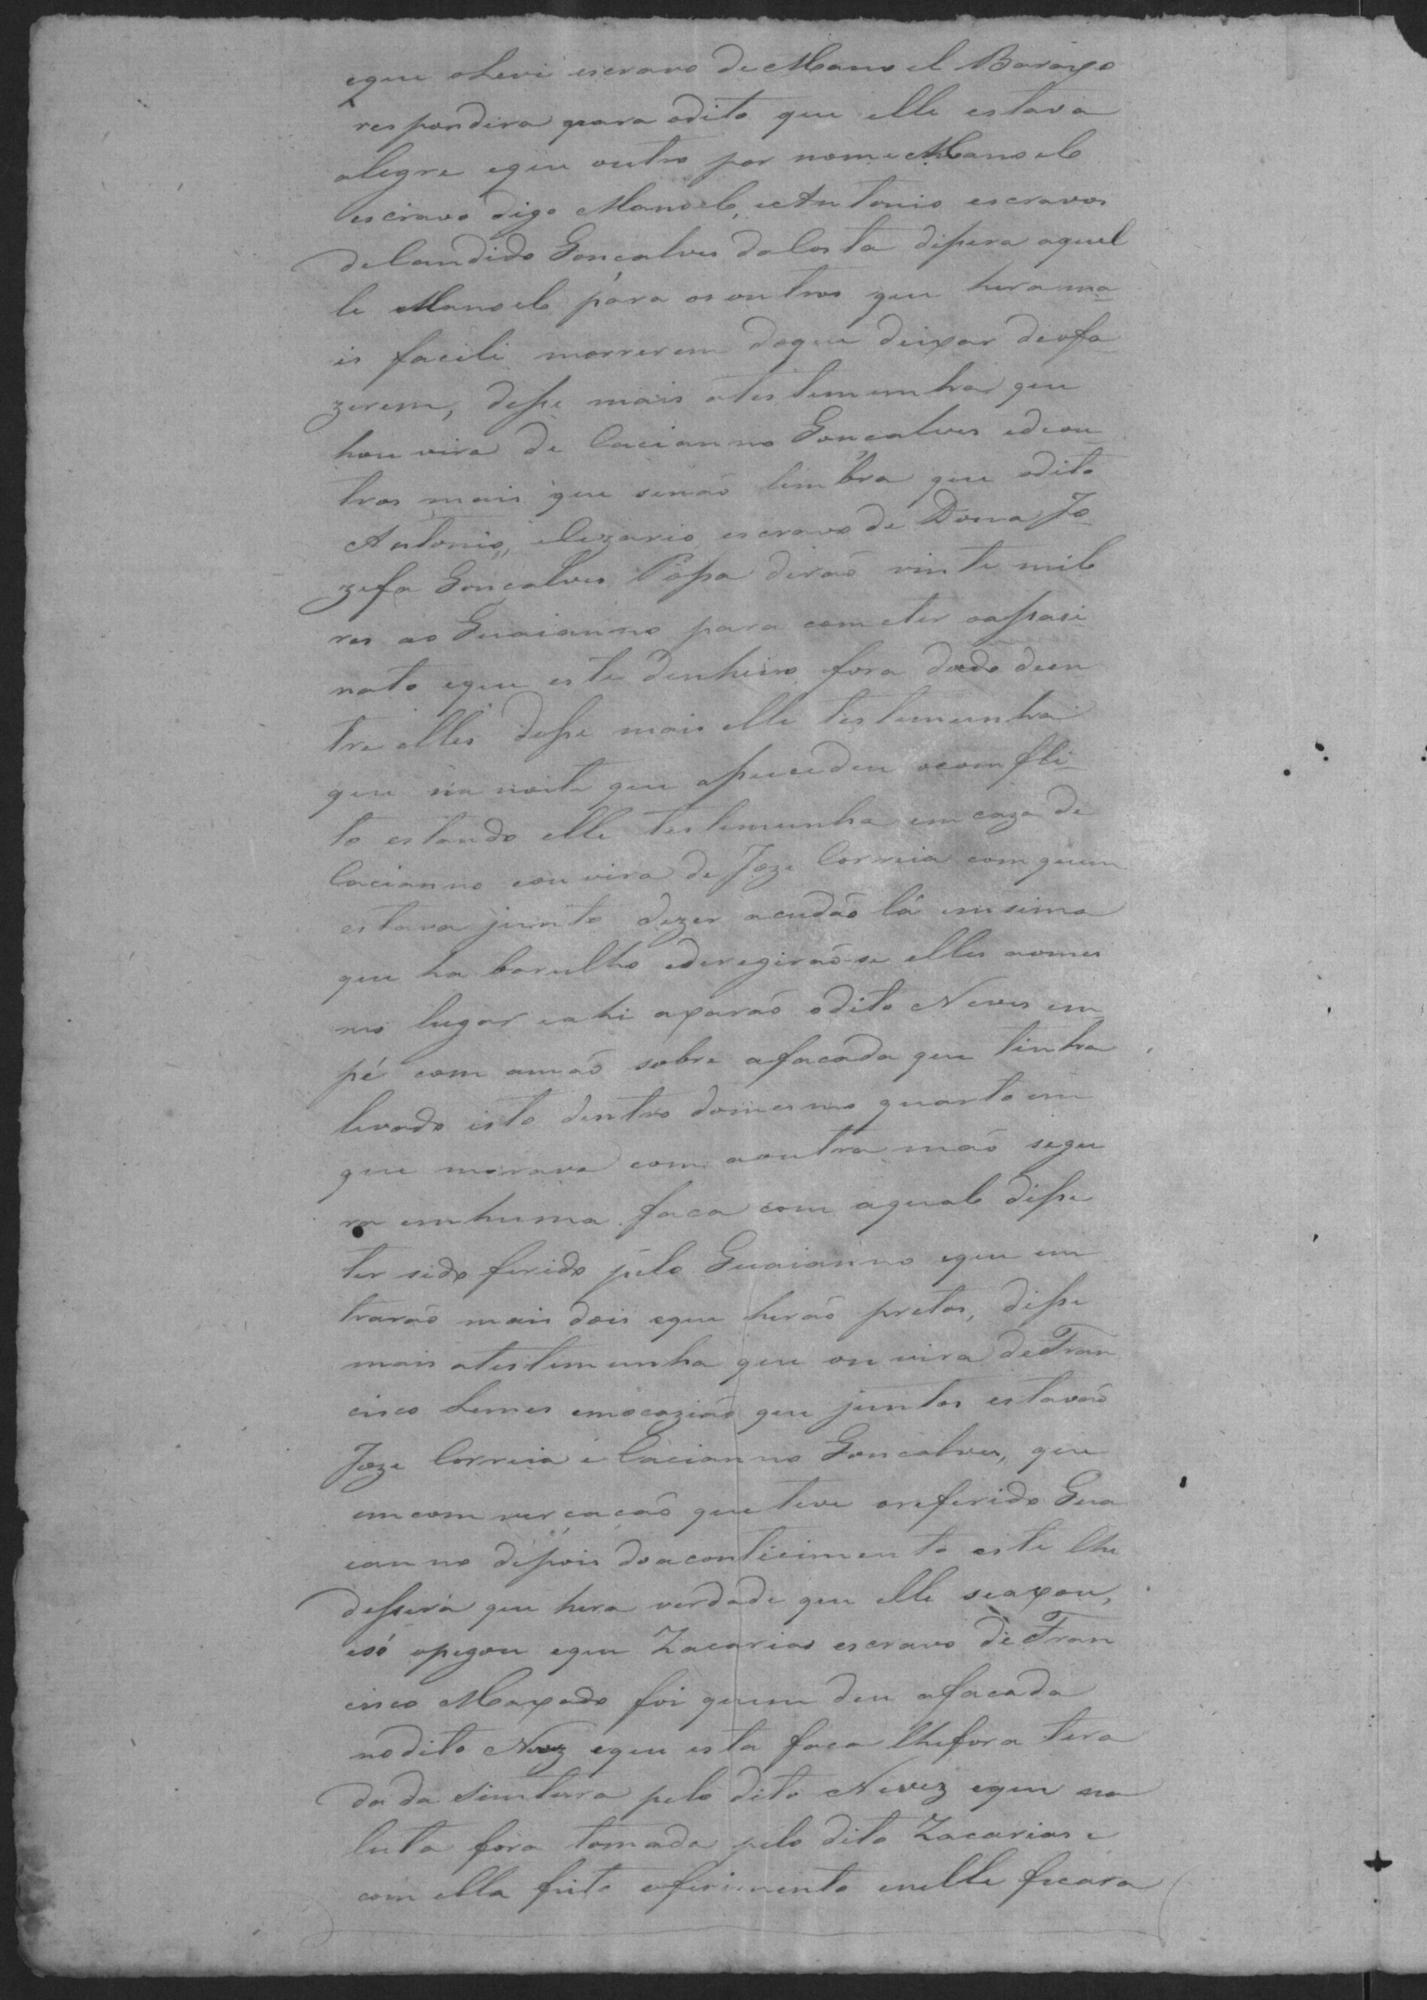 eque o Levi escravo de Manoel Borges
respondera para odito que elle estava
alegre eque outro por nome Manoel
escravo digo Manoel, e Antonio escravos
de Candido Gonçalves da Costa dipera aquel
le Manoel para os outros que hera ma
is facili morrerem doque deixar deofa
zerem, depe mais atestemunha que
houvira de Cacianno Gonçalves edeou
tros mais que senão lembra que odito
Antonio, elizario escravo de Dona Jo
zefa Gonçalves Papa derão vinte mil
res ao Guaianno para cometer oaspasi
nato eque este dinheiro fora dado deen
tre elles depe mais elle testemunha
que na noite que apucedeu ocomfli
to estando elle testemunha em caza de
Cacianno houvira de Joze Correia com quem
estava junto dizer acudão lá emsima
que ha barulho ederegirão-se elles aomes
mo lugar eahi axarão odito Neves em
pé com amão sobre afacada que tinha
levado isto dentro domesmo quarto em
que morava com aoutra mão segu
ra emhuma faca com aqual dipe
ter sido ferido pelo Guaianno eque en
trarão mais dois eque herão pretos, dipe
mais atestemunha que ouvira de Fran
cisco Lemes emocazião que juntos estavão
Joze Correia e Cacianno Gonçalves, que
emcomverçacão que teve oreferido Gua
ianno depois doaconticimento este lhe
depera que hera verdade que elle seaxou,
esó opegou eque Zacarias escravo de Fran
cisco Maxado foi quem deu afacada
nodito Nevez eque esta faca lhefora tera
da da sintura pelo dito Nevez eque na
luta fora tomada pelo dito Zacarias e
com ella feito oferimento enelle ficara